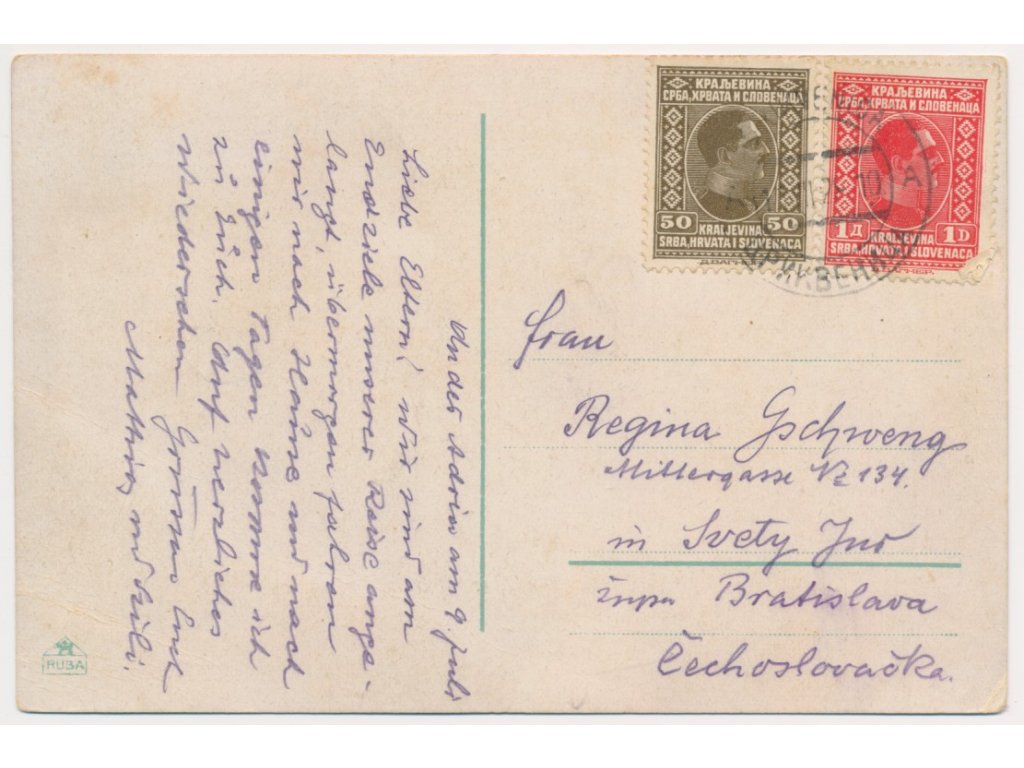 An der Adria am 9. Juli
Liebe Eltern! Wir sind am
Endziele unserer Reise ange-
langt, übermorgen fahren
wir nach Hause und nach
einigen Tagen komme ich
zu Euch. Auf herzliches
Wiedersehen Grüssen Euch
Mathias und Lili.
КРАЉЕВИНА
СРБА, ХРВАТА И СЛОВЕНАЦА
50 50
KRALJEVINA
SRBA, HRVATA I SLOVENACA
КРАЉЕВИНА
СРБА, ХРВАТА И СЛОВЕНАЦА
1Д 1D
KRALJEVINA
SRBA, HRVATA I SLOVENACA
Frau
Regina Gschweng
Mittergasse № 134.
in Svety Jur
župa Bratislava
Čechoslovačka.
RUBA